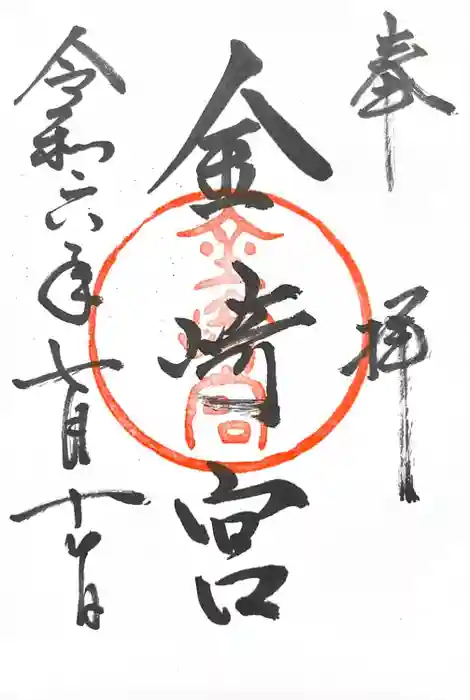 奉拝
金崎宮
金崎宮
令和六年七月十日